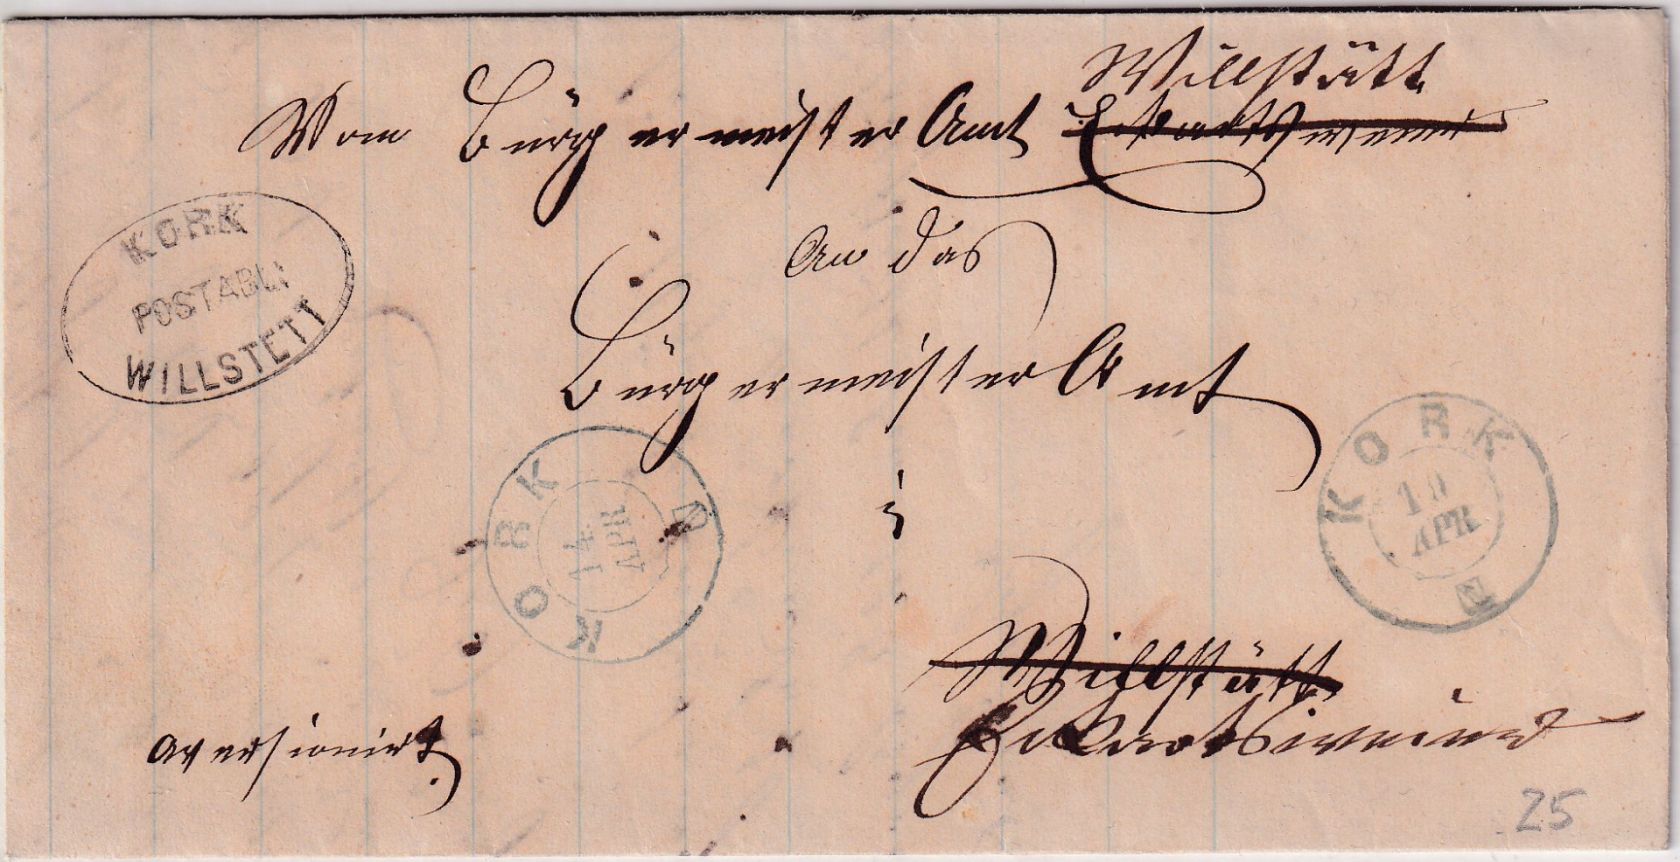 Willstätt
Vom Bürgermeister Amt Eckartsweier
KORK
POSTABL:
WILLSTETT
An das
Bürgermeister Amt
KORK
14
APR
KORK
10
APR
i
Willstätt
Eckartsweier
aversionirt.
25